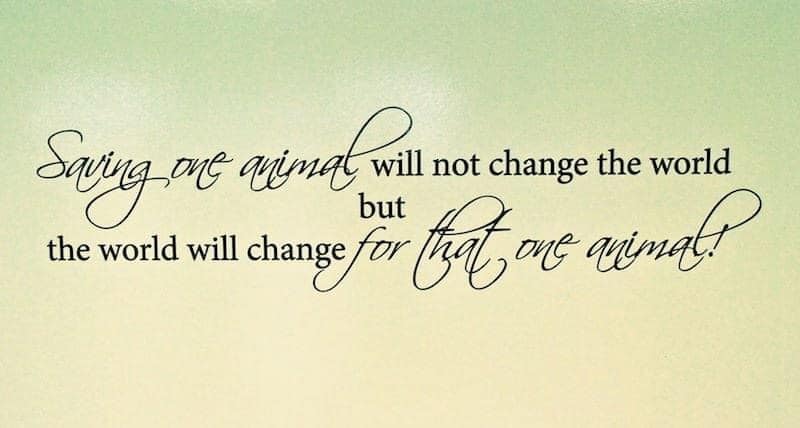 Saving one animal will not change the world
but
the world will change for that one animal!